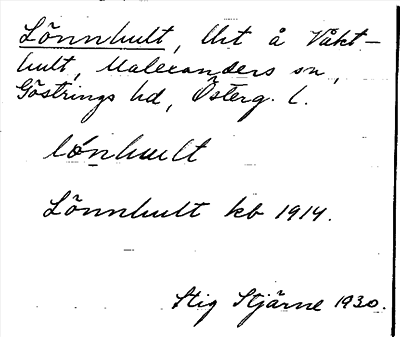 Lönnhult, lht å Våkt-
hult, Malexanders sn,
Göstrings hd, Österg. l.
lónhult
Lönnhult kb 1914.
Stig Stjärne 1930.